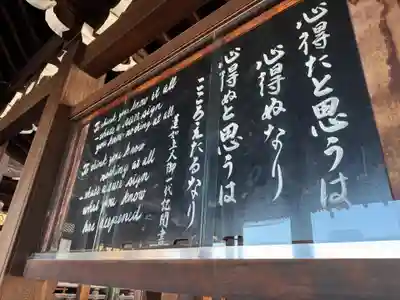 心得たと思うは
心得ぬなり
心得ぬと思うは
こころえたるなり
蓮如上人御一代記聞書
To think you know it all
-thats a sure sign
you know nothing at all
To think you know
nothing at all
-thats a sure sign
what you know
has deepened